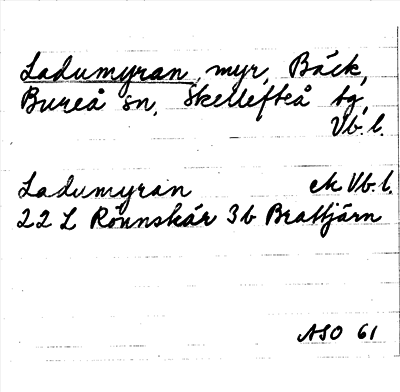 Ladumyran, myr, Bäck,
Bureå sn, Skellefteå tg,
Vb.l.
Ladumyran ek Vb.l.
22 L Rönnskär 3b Brattjärn
ASO 61